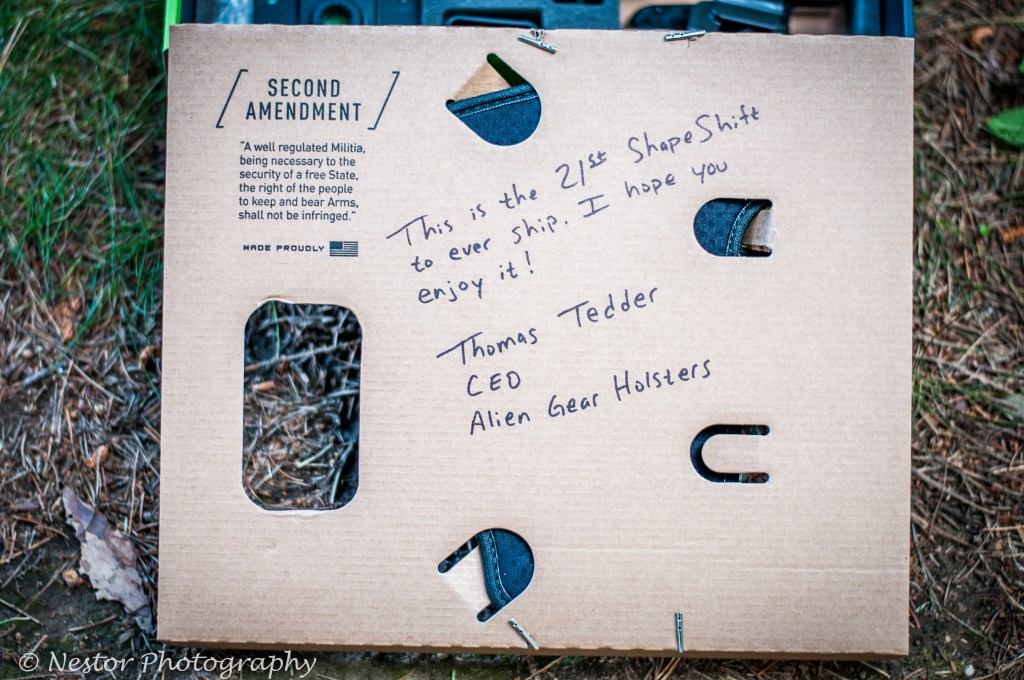 SECOND
AMENDMENT
"A well regulated Militia,
being necessary to the
security of a free State,
the right of the people
to keep and bear Arms,
shall not be infringed."
MADE PROUDLY
This is the 21st ShapeShift
to ever ship. I hope you
enjoy it!
Thomas Tedder
CEO
Alien Gear Holsters
© Nestor Photography